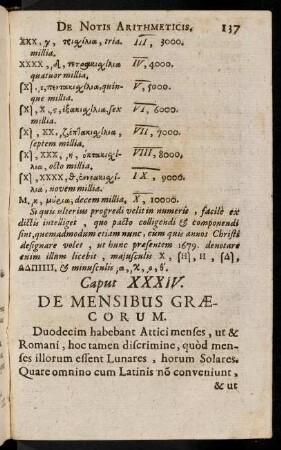 DE NOTIS ARITHMETICIS. 137
XXX, γ, τρισχίλια, tria III, 3000.
millia.
XXXX, δ, τετρακισχίλια, IV, 4000.
quatuor millia.
ε, πεντακισχίλια, quin- V, 5000.
que millia.
X, ς, ἑξακισχίλια, sex VI, 6000.
millia.
XX, ζ, ἑπτακισχίλια, VII, 7000.
septem millia.
XXX, η, ὀκτακισχί- VIII, 8000.
λια, octo millia.
XXXX, θ, ἐννεακισχί- IX, 9000.
λια, novem millia.
M, μύρια, decem millia, X, 10000.
Si quis ulterius progredi velit in numeris, facilè ex
dictis intelliget, quo pacto colligendi & componendi
sint, quemadmodum etiam nunc, cùm quis annos Christi
designare volet, ut hunc præsentem 1679. denotare
enim illum licebit, majusculis X, H, H, Δ,
ΔΔΠΙΙΙΙ, & minusculis, α, χ, ο, θ.
Caput XXXIV.
DE MENSIBUS GRÆ-
CORUM.
Duodecim habebant Attici menses, ut &
Romani, hoc tamen discrimine, quòd men-
ses illorum essent Lunares, horum Solares.
Quare omnino cum Latinis nō conveniunt,
& ut